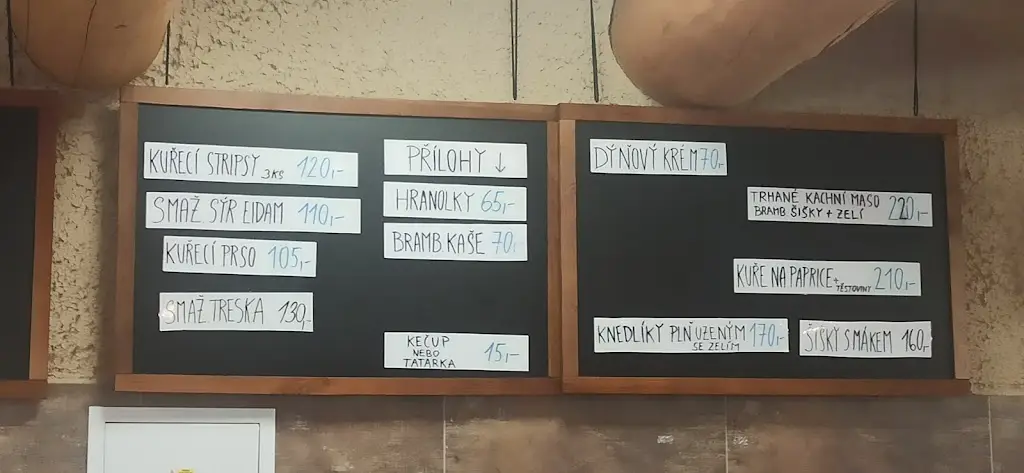 KUŘECÍ STRIPSY 3KS 120,-
SMAŽ SÝR EIDAM 110,-
KUŘECÍ PRSO 105,-
SMAŽ TRESKA 130,-
PŘÍLOHY ↓
HRANOLKY 65,-
BRAMB. KAŠE 70,-
KEČUP
NEBO
TATARKA 15,-
DÝŇOVÝ KRÉM 70,-
TRHANÉ KACHNÍ MASO
BRAMB ŠIŠKY + ZELÍ 220,-
KUŘE NA PAPRICE + TĚSTOVINY 210,-
KNEDLÍKY PLŇ UZENÝM 170,-
SE ZELÍM
ŠIŠKY S MÁKEM 160,-